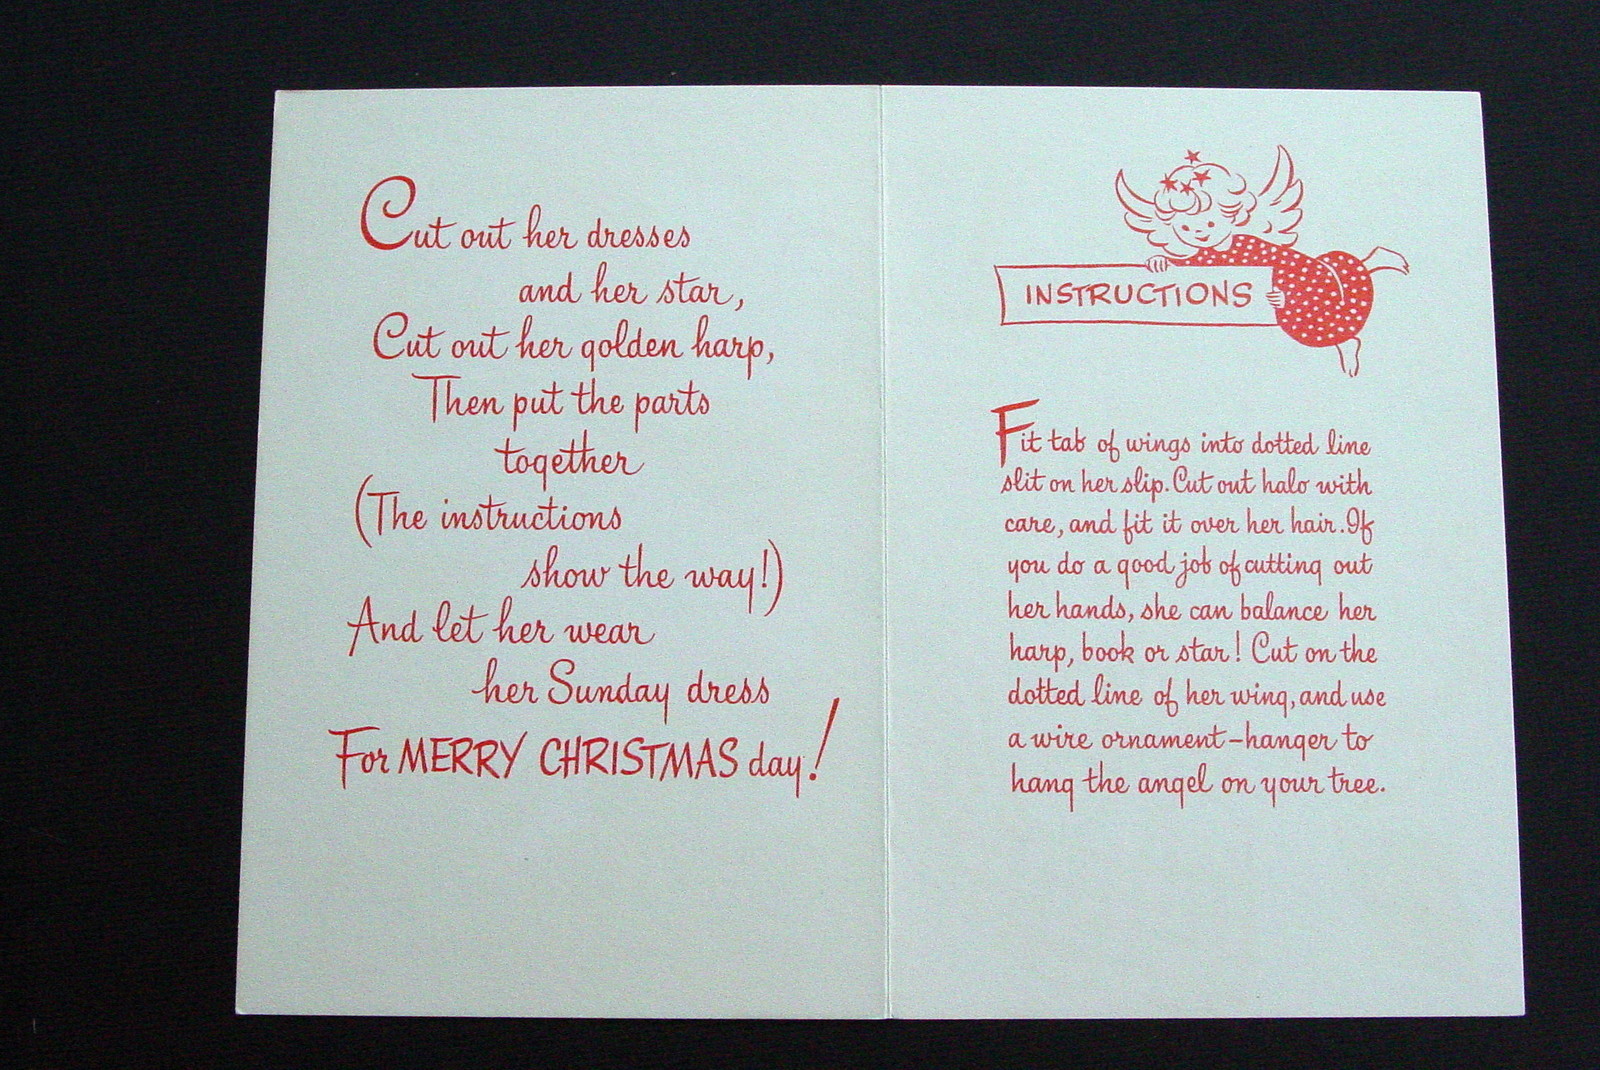 Cut out her dresses
and her star,
Cut out her golden harp,
Then put the parts
together
(The instructions
show the way!)
And let her wear
her Sunday dress
For MERRY CHRISTMAS day!
INSTRUCTIONS
Fit tab of wings into dotted line
slit on her slip. Cut out halo with
care, and fit it over her hair. If
you do a good job of cutting out
her hands, she can balance her
harp, book or star! Cut on the
dotted line of her wing, and use
a wire ornament-hanger to
hang the angel on your tree.